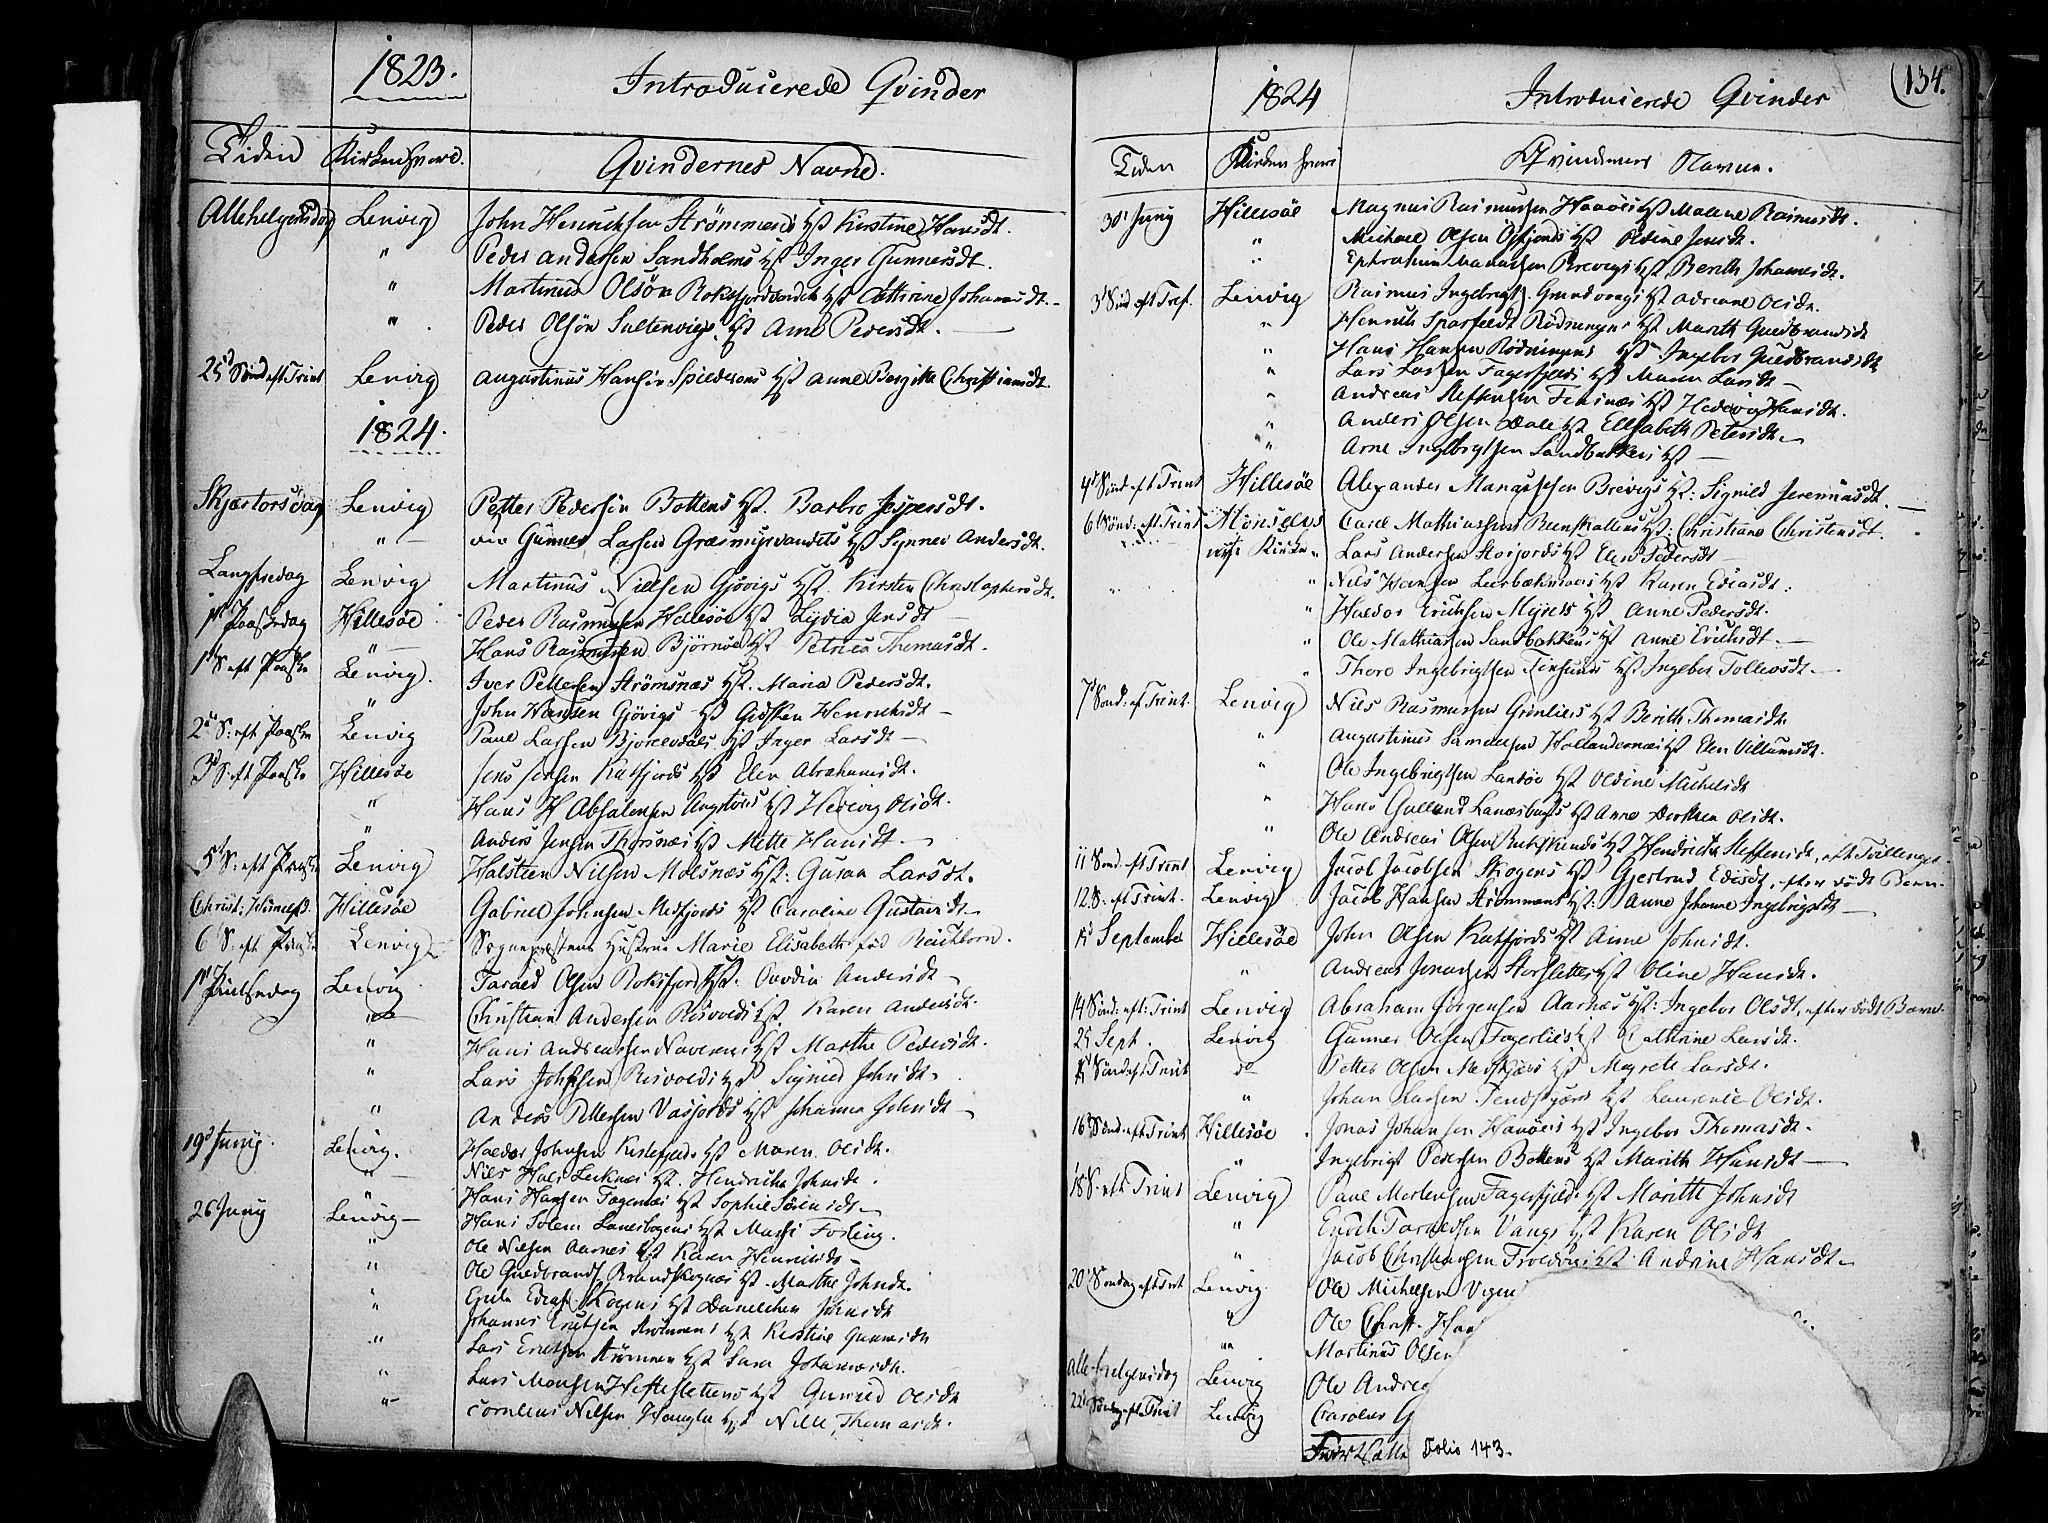 1823.
Introducierede Qvinder
Tiden Kirkens Navne. Qvindernes Navne.
Allehelgensdag Lenvig John Henrichsen Strömmens Hst Kirstine Hansdt.
" Peder Andersen Sandholms Hst Inger Gunnersdt.
" Martinus Olsön Roksfjordvandets Hst Cathrine Johansdt.
" Peder Olsön Sultenvigs Hst Ane Pedersdt.
25d Sönd eft Trint Lenvig Augustinus Hansön Spilderens Hst Anne Bergitte Christiansdt.
1824.
Skjærtorsdag Lenvig Petter Pedersen Bottens Hst. Barbro Jespersdt.
" Gunner Larsen Græsmyrvandets Hst Synnev Andersdt.
Langfredag Lenvig Martinus Nielsen Gjövigs Hst. Kirsten Christophersdt.
1st Paaskedag Hillesöe Peder Rasmussen Hillesöe Hst Lydia Jensdt
" Hans Rasmussen Björnöe Hst Petrica Thomasdt.
1 S. eft Paaske Lenvig. Iver Pettersen Strömsnæs Hst. Maria Pedersdt.
" John Hansen Gjövigs Hst Gidsken Henrichsdt
2d S: eft Paaske Lenvig Paul Larsen Bjorelvdals Hst Inger Larsdt
3d S: eft Paaske Hillesöe Jens Jensen Katfjords Hst Elen Abrahamsdt.
" Hans H Absalonsen Angstöes Hst Hedevig Olsdt.
" Anders Jensen Thorsnæs Hst Mette Hansdt.
5d S: eft Paaske Lenvig Halsteen Nilsen Molsnæs Hst: Guran Larsdt.
Christi Himelfd. Hillesöe Gabriel Johnsen Mefjords Hst Caroline Gustavsdt
6 S. eft Paaske Lenvig Sognepræstens Hustrue Marie Elisabeth föd
1st Pintsedag Lenvig Tarald Olsen Roksfjord Hst. Ovedia Andersdt
" Christian Andersen Risvolds Hst. Karen Andersdt.
" Hans Andreassen Navarens Hst Marthe Pedersdt.
" Lars Johnsen Risvolds Hst Sigrid Johnsdt.
" Anders Pettersen Vasjords Hst Johanna Johnsdt
19d Junij. Lenvig. Haldor Johnsen Kistefjeld Hst Maren Olsdt.
" Nils Hals Leeknæs Hst. Henricha Johnsdt.
" Hans Hansen Fagernæs Hst Sophie Sörensdt
26 Junij Lenvig Hans Solem Lanesbogens Hst Massi Fosling.
" Ole Nilsen Aarnes Hst Karen Henrichsdt
" Ole Guldbrands Brandskognæs Hst. Marthe Johnsdt.
" Skogens Hst Danelchen Johnsdt
" Johannes Erichsen Strömmens Hst Kirstine Gunnersdt
" Lars Erichsen Strömmen Hst Sara Johannesdt.
" Lars Monsen Hestesletten Hst Gunnild Olsdt
" Cornelius Nilsen Houglie Hst Nille Thomasdt.
(134.
1824
Introducierede Qvinder
Tiden Kirkens Navne Qvindernes Navne.
30d Junij Hillesöe Magnus Rasmussen Haaöes Hst Malene Rasmusdt.
" Michael Olsen Oxfjords Hst Oldine Jensdt.
" Ephraim Manassen Brevigs Hst Berith Johannesdt.
3d Sönd eft Tref. Lenvig Rasmus Ingebrigts. Grundvaags Hst Adriane Olsdt.
" Henrich Sparfeldt Rödningens Hst Marith Guldbrandsdt
" Hans Hansen Rödningens Hst Ingebor Guldbrandsdt
" Lars Larsen Fagerfjelds Hst Maren Larsdt
" Andreas Steffensen Finsnæs Hst Hedevig Hansdt.
" Anders Olsen Dale Hst Elisabeth Petersdt
" Arne Ingebrigtsen Sandbakkens Hst
4d Sönd eft Trint Hillesöe Alexander Manassesen Brevigs Hst: Signild Jeremiasdt.
6 Sönd: eft Trint Maalselvs Carel Mathiassen Hst: Christiane Christensdt.
nye Kirke " Lars Andersen Storjords Hst Elen Pedersdt
" Nils Hansen Leerbækmoes Hst Karen Ediasdt.
" Haldor Erichsen Myrets Hst Anne Pedersdt.
" Ole Mathiassen Sandbakkens Hst Anne Erichsdt.
" Thore Ingebrigtsen Finsunds Hst Ingebor Tollevsdt
7d Sönd: ef Trint. Lenvig Nils Rasmussen Grönliers Hst Berith Thomasdt
" Augustinus Samuelsen Hollandernæs Hst Elen Villumsdt.
" Ole Ingebrigtsen Sandöe Hst Oldine Michelsdt
" Hans Gulland Lanesbugts Hst Anne Dorthea Olsdt.
" Ole Andreas Olsen Hst Hendricha Steffensdt, eft Tvillinger
11 Sönd. eft Trint Lenvig Jacob Jacobsen Skogens Hst Gjertrud Ediasdt, efter dödt Barn
12. S. eft Trint. Lenvig Jacob Hansen Strömmens Hst: Anne Johanne Ingebrigtsdt
September Hillesöe John Olsen Katfjords Hst Anne Johnsdt.
" Andreas Jonassen Storslettes Hst Oline Hansdt.
14 Sönd: eft: Trint Lenvig Abraham Jörgensen Aarnæs Hst: Ingebor Olsdt, efter dödt Barn.
25 Sept. Lenvig Gunner Olsen Fagerlies Hst Cathrine Larsdt.
Sönd eft Trint do Petter Olsen Medkjærs Hst Magrete Larsdt.
" Johan Larsen Tendskjærs Hst Laurence Olsdt.
16d Sönd. eft Trint Hillesöe Jonas Johansen Haaöens Hst Ingebor Thomasdt.
" Ingebrigt Pedersen Bottens Hst Marith Hansdt
18 S. eft Trint Lenvig Paul Mortensen Fagerfjeld Hst Marith Johnsdt
" Erich Taraldsen Vangs Hst Karen Olsdt
" Jacob Christiansen Hst. Andrine Hansdt
20d Söndag eft Trint Lenvig. Ole Michelsen
" Ole Christ. Han
" Martinus Olsen
Alle helgensdag Lenvig Ole Andre
22d Söndag eft Trint Lenvig Carolus G
Folio 143.